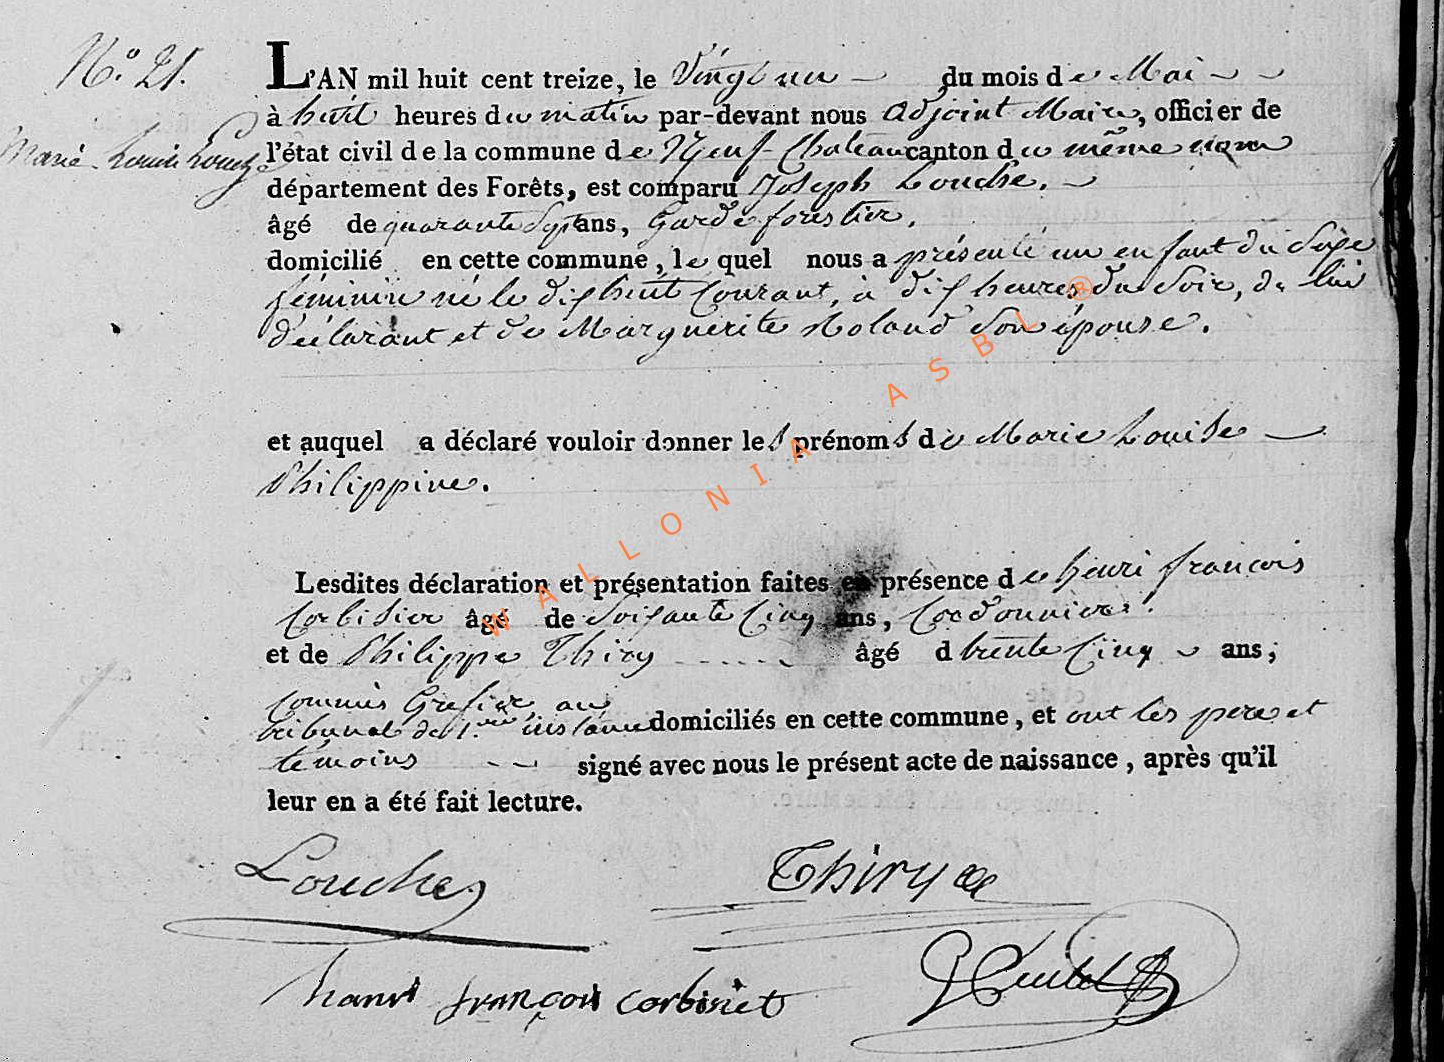 N.° 21.
L'AN mil huit cent treize, le Vingt un du mois de Mai
à huit heures du matin par-devant nous adjoint Maire, officier de
Marie Louise Louche
l'état civil de la commune de Neuf-Chateau canton du même nom
département des Forêts, est comparu Joseph Louche.
âgé de quarante Sept ans, Garde forestier,
domicilié en cette commune, le quel nous a présenté un enfant du Sexe
féminin né le dix huit Courant, à dix heures du Soir, de lui
déclarant et de Marguerite Roland Son épouse.
et auquel a déclaré vouloir donner les prénoms de Marie Louise
Philippine.
Lesdites déclaration et présentation faites en présence de henri francois
Corbisier âgé de Soixante Cinq ans, Cordonnier.
et de Philippe Thiry âgé d trente Cinq ans;
commis Grefier au
tribunal de 1.ere instance domiciliés en cette commune, et ont les pere et
témoins signé avec nous le présent acte de naissance, après qu'il
leur en a été fait lecture.
Louche
Thiry
hanri françois corbisiet
WALLONIA ASBL ®